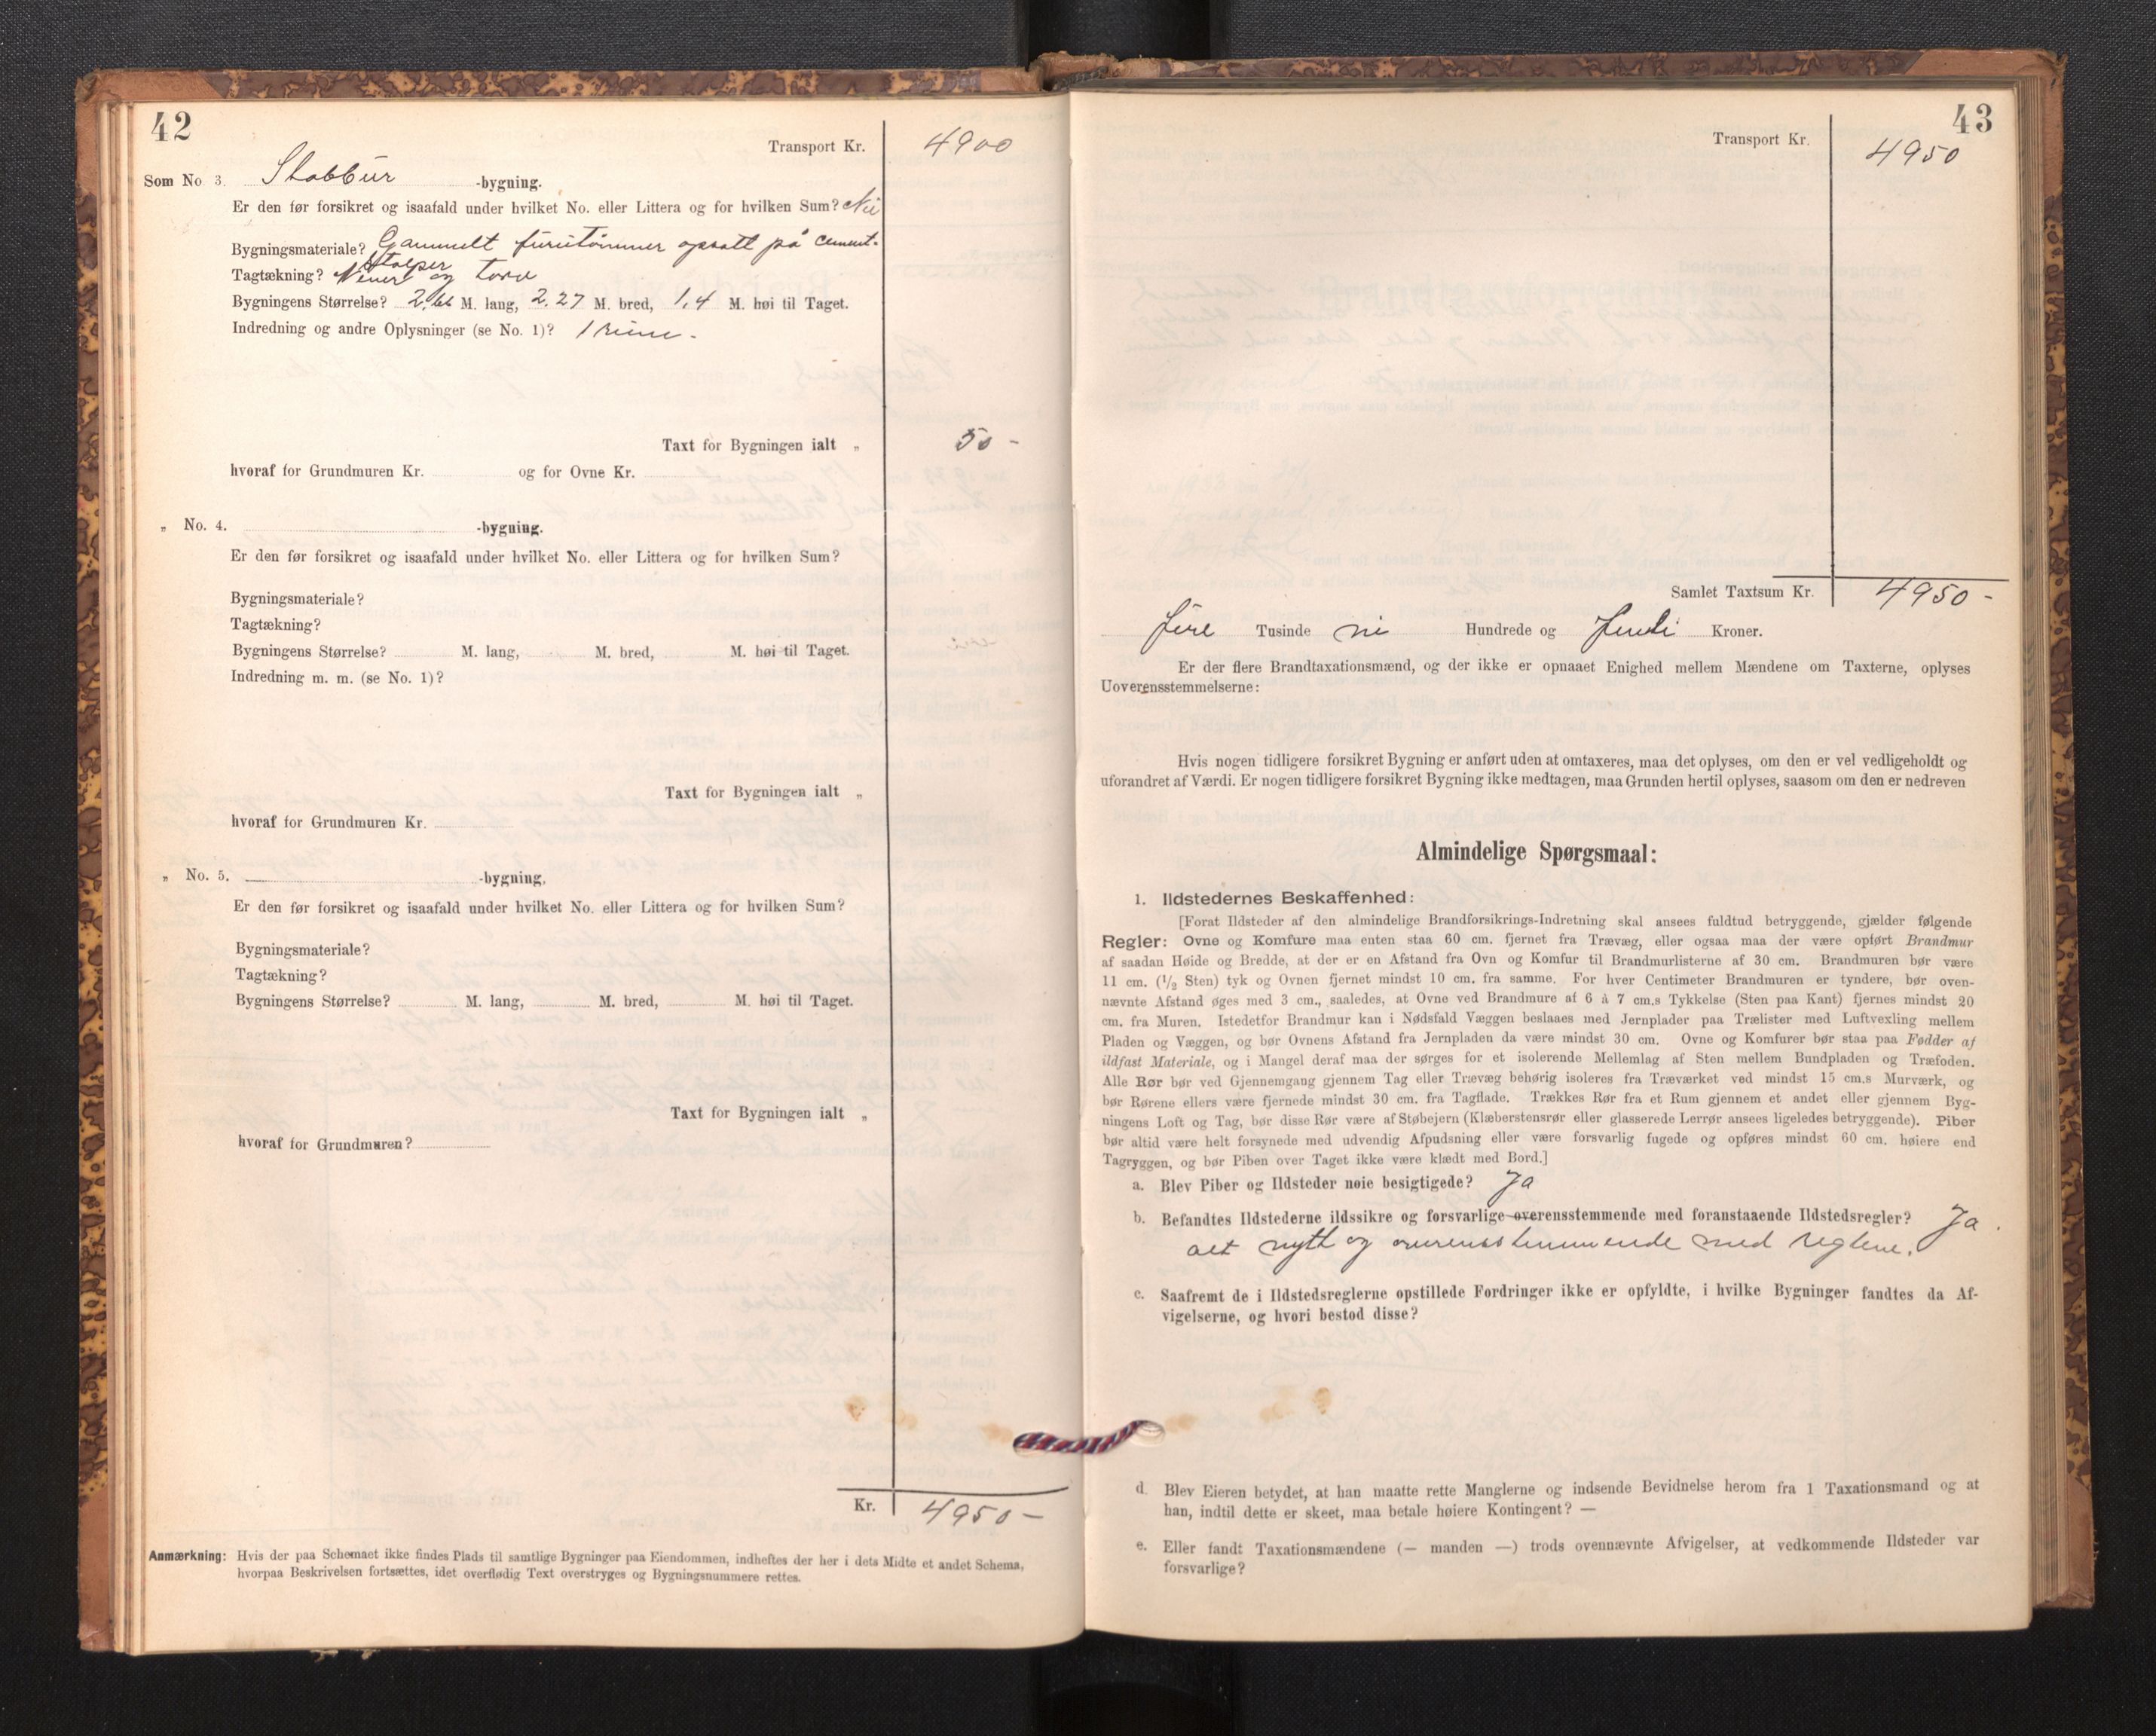 42
Transport Kr. 4900
Som No. 3. Stabbur -bygning.
Er den før forsikret og isaafald under hvilket No. eller Littera og for hvilken Sum? Nei
Bygningsmateriale? Gammelt furutømmer opsatt på cement-
stolper
Tagtækning? Never og torv
Bygningens Størrelse? M. lang, 2,27 M. bred, 1,4 M. høi til Taget.
Indredning og andre Oplysninger (se No. 1)? 1 rum.
Taxt for Bygningen ialt „ 50 -
hvoraf for Grundmuren Kr. og for Ovne Kr.
„ No. 4. -bygning.
Er den før forsikret og isaafald under hvilket No. eller Littera og for hvilken Sum?
Bygningsmateriale?
Tagtækning?
Bygningens Størrelse? M. lang, M. bred, M. høi til Taget.
Indredning m. m. (se No. 1)?
Taxt for Bygningen ialt „
hvoraf for Grundmuren Kr.
„ No. 5. -bygning.
Er den før forsikret og isaafald under hvilket No. eller Littera og for hvilken Sum?
Bygningsmateriale?
Tagtækning?
Bygningens Størrelse? M. lang, M. bred, M. høi til Taget.
Taxt for Bygningen ialt „
hvoraf for Grundmuren?
Kr. 4950 -
Anmærkning: Hvis der paa Schemaet ikke findes Plads til samtlige Bygninger paa Eiendommen, indheftes der her i dets Midte et andet Schema,
hvorpaa Beskrivelsen fortsættes, idet overflødig Text overstryges og Bygningsnummere rettes.
43
Transport Kr. 4950
Samlet Taxtsum Kr. 4950 -
fire Tusinde ni Hundrede og femti Kroner.
Er der flere Brandtaxationsmænd, og der ikke er opnaaet Enighed mellem Mændene om Taxterne, oplyses
Uoverensstemmelserne:
Hvis nogen tidligere forsikret Bygning er anført uden at omtaxeres, maa det oplyses, om den er vel vedligeholdt og
uforandret af Værdi. Er nogen tidligere forsikret Bygning ikke medtagen, maa Grunden hertil oplyses, saasom om den er nedreven
Almindelige Spørgsmaal:
1. Ildstedernes Beskaffenhed:
[Forat Ildsteder af den almindelige Brandforsikrings-Indretning skal ansees fuldtud betryggende, gjælder følgende
Regler: Ovne og Komfure maa enten staa 60 cm. fjernet fra Trævæg, eller ogsaa maa der være opført Brandmur
af saadan Høide og Bredde, at der er en Afstand fra Ovn og Komfur til Brandmurlisterne af 30 cm. Brandmuren bør være
11 cm. (1/2 Sten) tyk og Ovnen fjernet mindst 10 cm. fra samme. For hver Centimeter Brandmuren er tyndere, bør oven-
nævnte Afstand øges med 3 cm., saaledes, at Ovne ved Brandmure af 6 à 7 cm.s Tykkelse (Sten paa Kant) fjernes mindst 20
cm. fra Muren. Istedetfor Brandmur kan i Nødsfald Væggen beslaaes med Jernplader paa Trælister med Luftvexling mellem
Pladen og Væggen, og bør Ovnens Afstand fra Jernpladen da være mindst 30 cm. Ovne og Komfurer bør staa paa Fødder af
ildfast Materiale, og i Mangel deraf maa der sørges for et isolerende Mellemlag af Sten mellem Bundpladen og Træfoden.
Alle Rør bør ved Gjennemgang gjennem Tag eller Trævæg behørig isoleres fra Træværket ved mindst 15 cm.s Murværk, og
bør Rørene ellers være fjernede mindst 30 cm. fra Tagflade. Trækkes Rør fra et Rum gjennem et andet eller gjennem Byg-
ningens Loft og Tag, bør disse Rør være af Støbejern (Klæberstensrør eller glasserede Lerrør ansees ligeledes betryggende). Piber
bør altid være helt forsynede med udvendig Afpudsning eller være forsvarlig fugede og opføres mindst 60 cm. høiere end
Tagryggen, og bør Piben over Taget ikke være klædt med Bord.]
a. Blev Piber og Ildsteder nøie besigtigede? Ja
b. Befandtes Ildstederne ildssikre og forsvarlige overensstemmende med foranstaaende Ildstedsregler? Ja.
alt nytt og overensstemmende med reglene.
c. Saafremt de i Ildstedsreglerne opstillede Fordringer ikke er opfyldte, i hvilke Bygninger fandtes da Af-
vigelserne, og hvori bestod disse?
d. Blev Eieren betydet, at han maatte rette Manglerne og indsende Bevidnelse herom fra 1 Taxationsmand og at
han, indtil dette er skeet, maa betale høiere Kontingent? —
e. Eller fandt Taxationsmændene (— manden —) trods ovennævnte Afvigelser, at vedkommende Ildsteder var
forsvarlige?